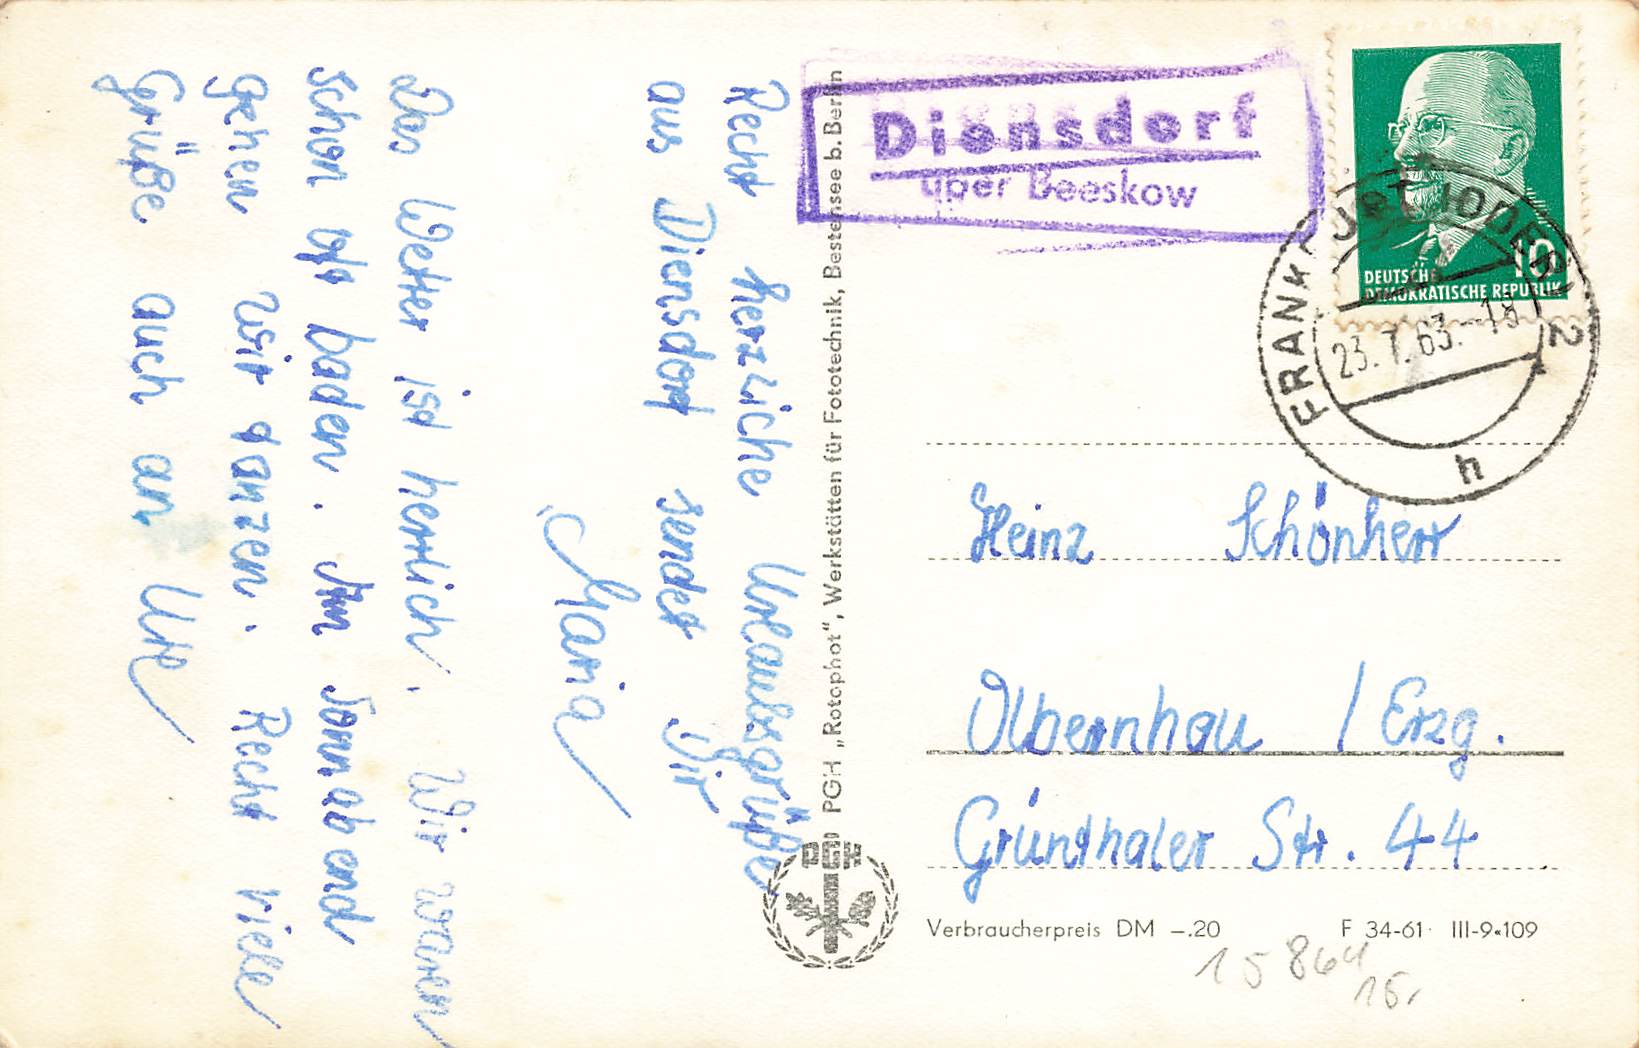 Recht herzliche Urlaubsgrüße
aus Diensdorf sendet Dir
Maria
Das Wetter ist herrlich. Wir waren
schon oft baden. Am Sonnabend
gehen wir tanzen. Recht viele
Grüße auch an Ute
PGH „Rotophot“, Werkstätten für Fototechnik, Bestensee b. Berlin
PGH
Diensdorf
über Beeskow
10
DEUTSCHE
DEMOKRATISCHE REPUBLIK
FRANKFURT (ODER) 2
23.7.63.-18
h
Heinz Schönherr
Olbernhau / Erzg.
Grünthaler Str. 44
Verbraucherpreis DM –.20 F 34-61 III-9-109
15 864
15.